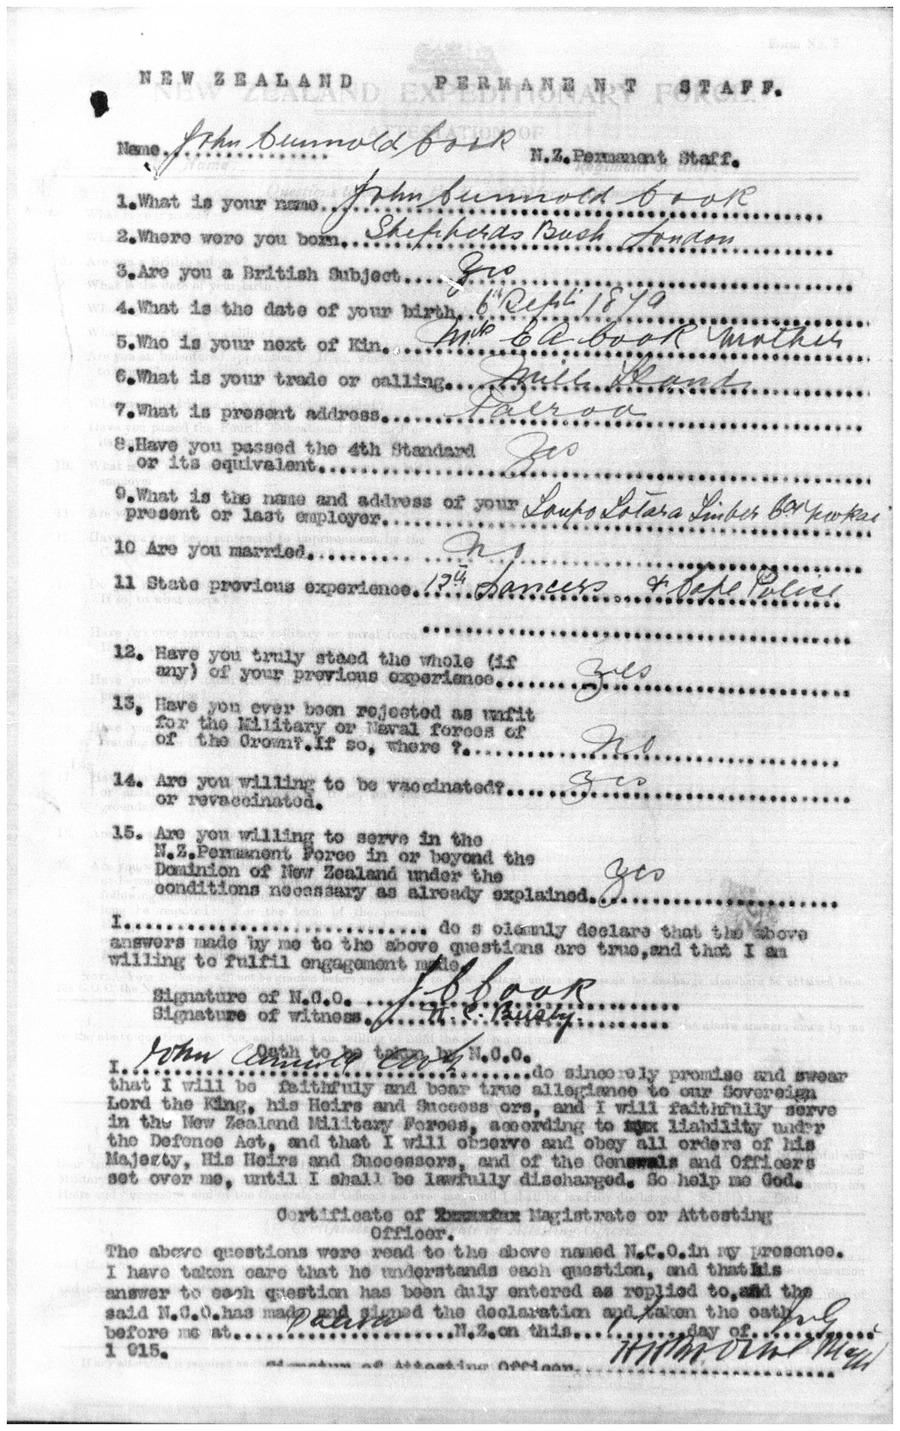 NEW ZEALAND PERMANENT STAFF.
NEW ZEALAND EXPEDITIONARY FORCE.
ATTESTATION OF
Name. John Cunnold Cook N.Z.Permanent Staff.
1.What is your name. John Cunnold Cook
2.Where were you born. Shepherds Bush London
3.Are you a British Subject. Yes
4.What is the date of your birth. 6th Sept 1879
5.Who is your next of Kin. E A Cook Mother
6.What is your trade or calling. Mill Hand
7.What is present address. Paeroa
8.Have you passed the 4th Standard Yes
or its equivalent.
9.What is the name and address of your
present or last employer. Totara Timber
10 Are you married. No
11 State previous experience. 12th Lancers & Cape Police
12. Have you truly staed the whole (if
any) of your previous experience. Yes
13, Have you ever been rejected as unfit
for the Military or Naval forces of
of the Crown?.If so, where ?. No
14. Are you willing to be vaccinated? Yes
or revaccinated.
15. Are you willing to serve in the
N.Z.Permanent Force in or beyond the
Dominion of New Zealand under the
conditions necessary as already explained. Yes
I. do s olemnly declare that the above
answers made by me to the above questions are true,and that I am
willing to fulfil engagement made.
Signature of N.C.O. J C Cook
Signature of witness.
Oath to be taken by N.C.O.
I. John Cunnold Cook do sincerely promise and swear
that I will be faithfuly and bear true allegiance to our Sovereign
Lord the King, his Heirs and Success ors, and I will faithfully serve
in the New Zealand Military Forces, according to my liability under
the Defence Act, and that I will observe and obey all orders of his
Majesty, His Heirs and Successors, and of the Generals and Officers
set over me, until I shall be lawfully discharged. So help me God.
Certificate of Magistrate or Attesting
Officer.
The above questions were read to the above named N.C.O.in my presence.
I have taken care that he understands each question, and that his
answer to each question has been duly entered as replied to,and the
said N.C.O.has made and signed the declaration and taken the oath
before me at. Paeroa N.Z.on this. day of. July
1 915.
Signature of Attesting Officer.